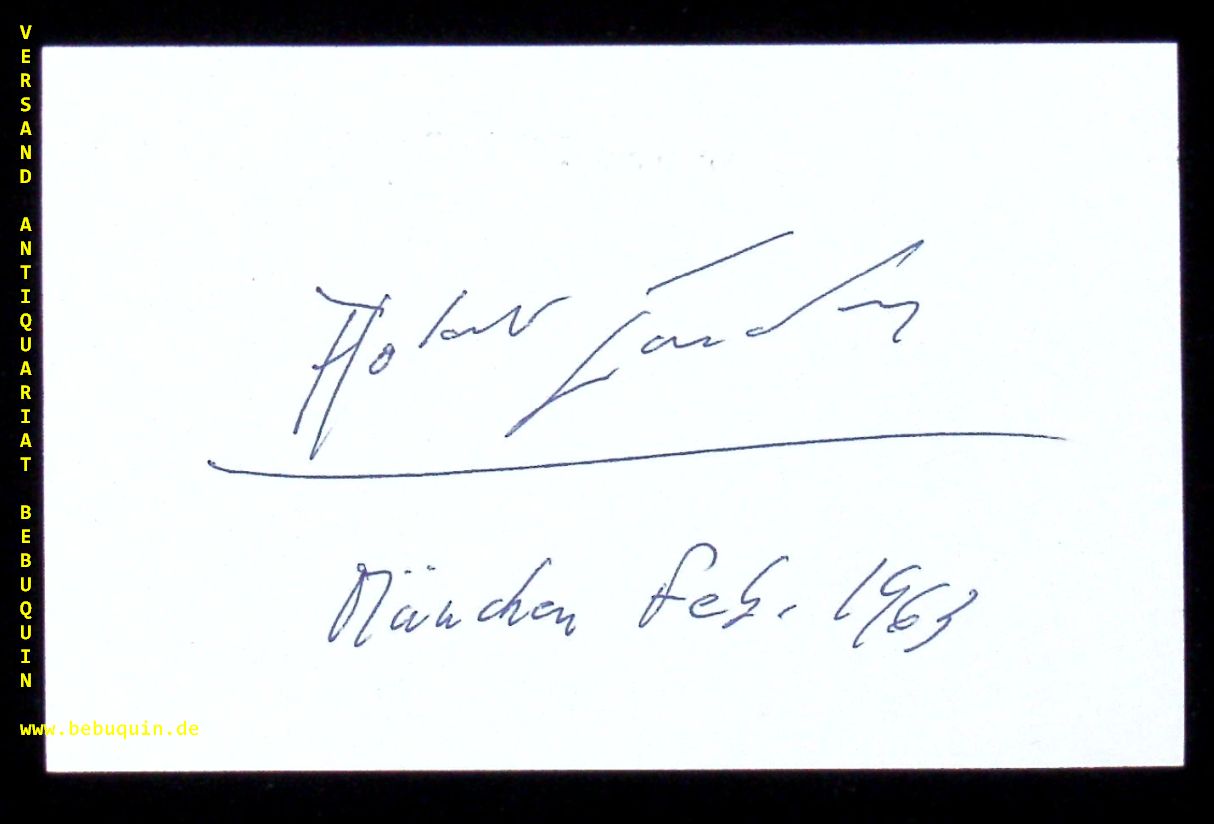 VERSAND ANTIQUARIAT BEBUQUIN
München Feb. 1963
www.bebuquin.de